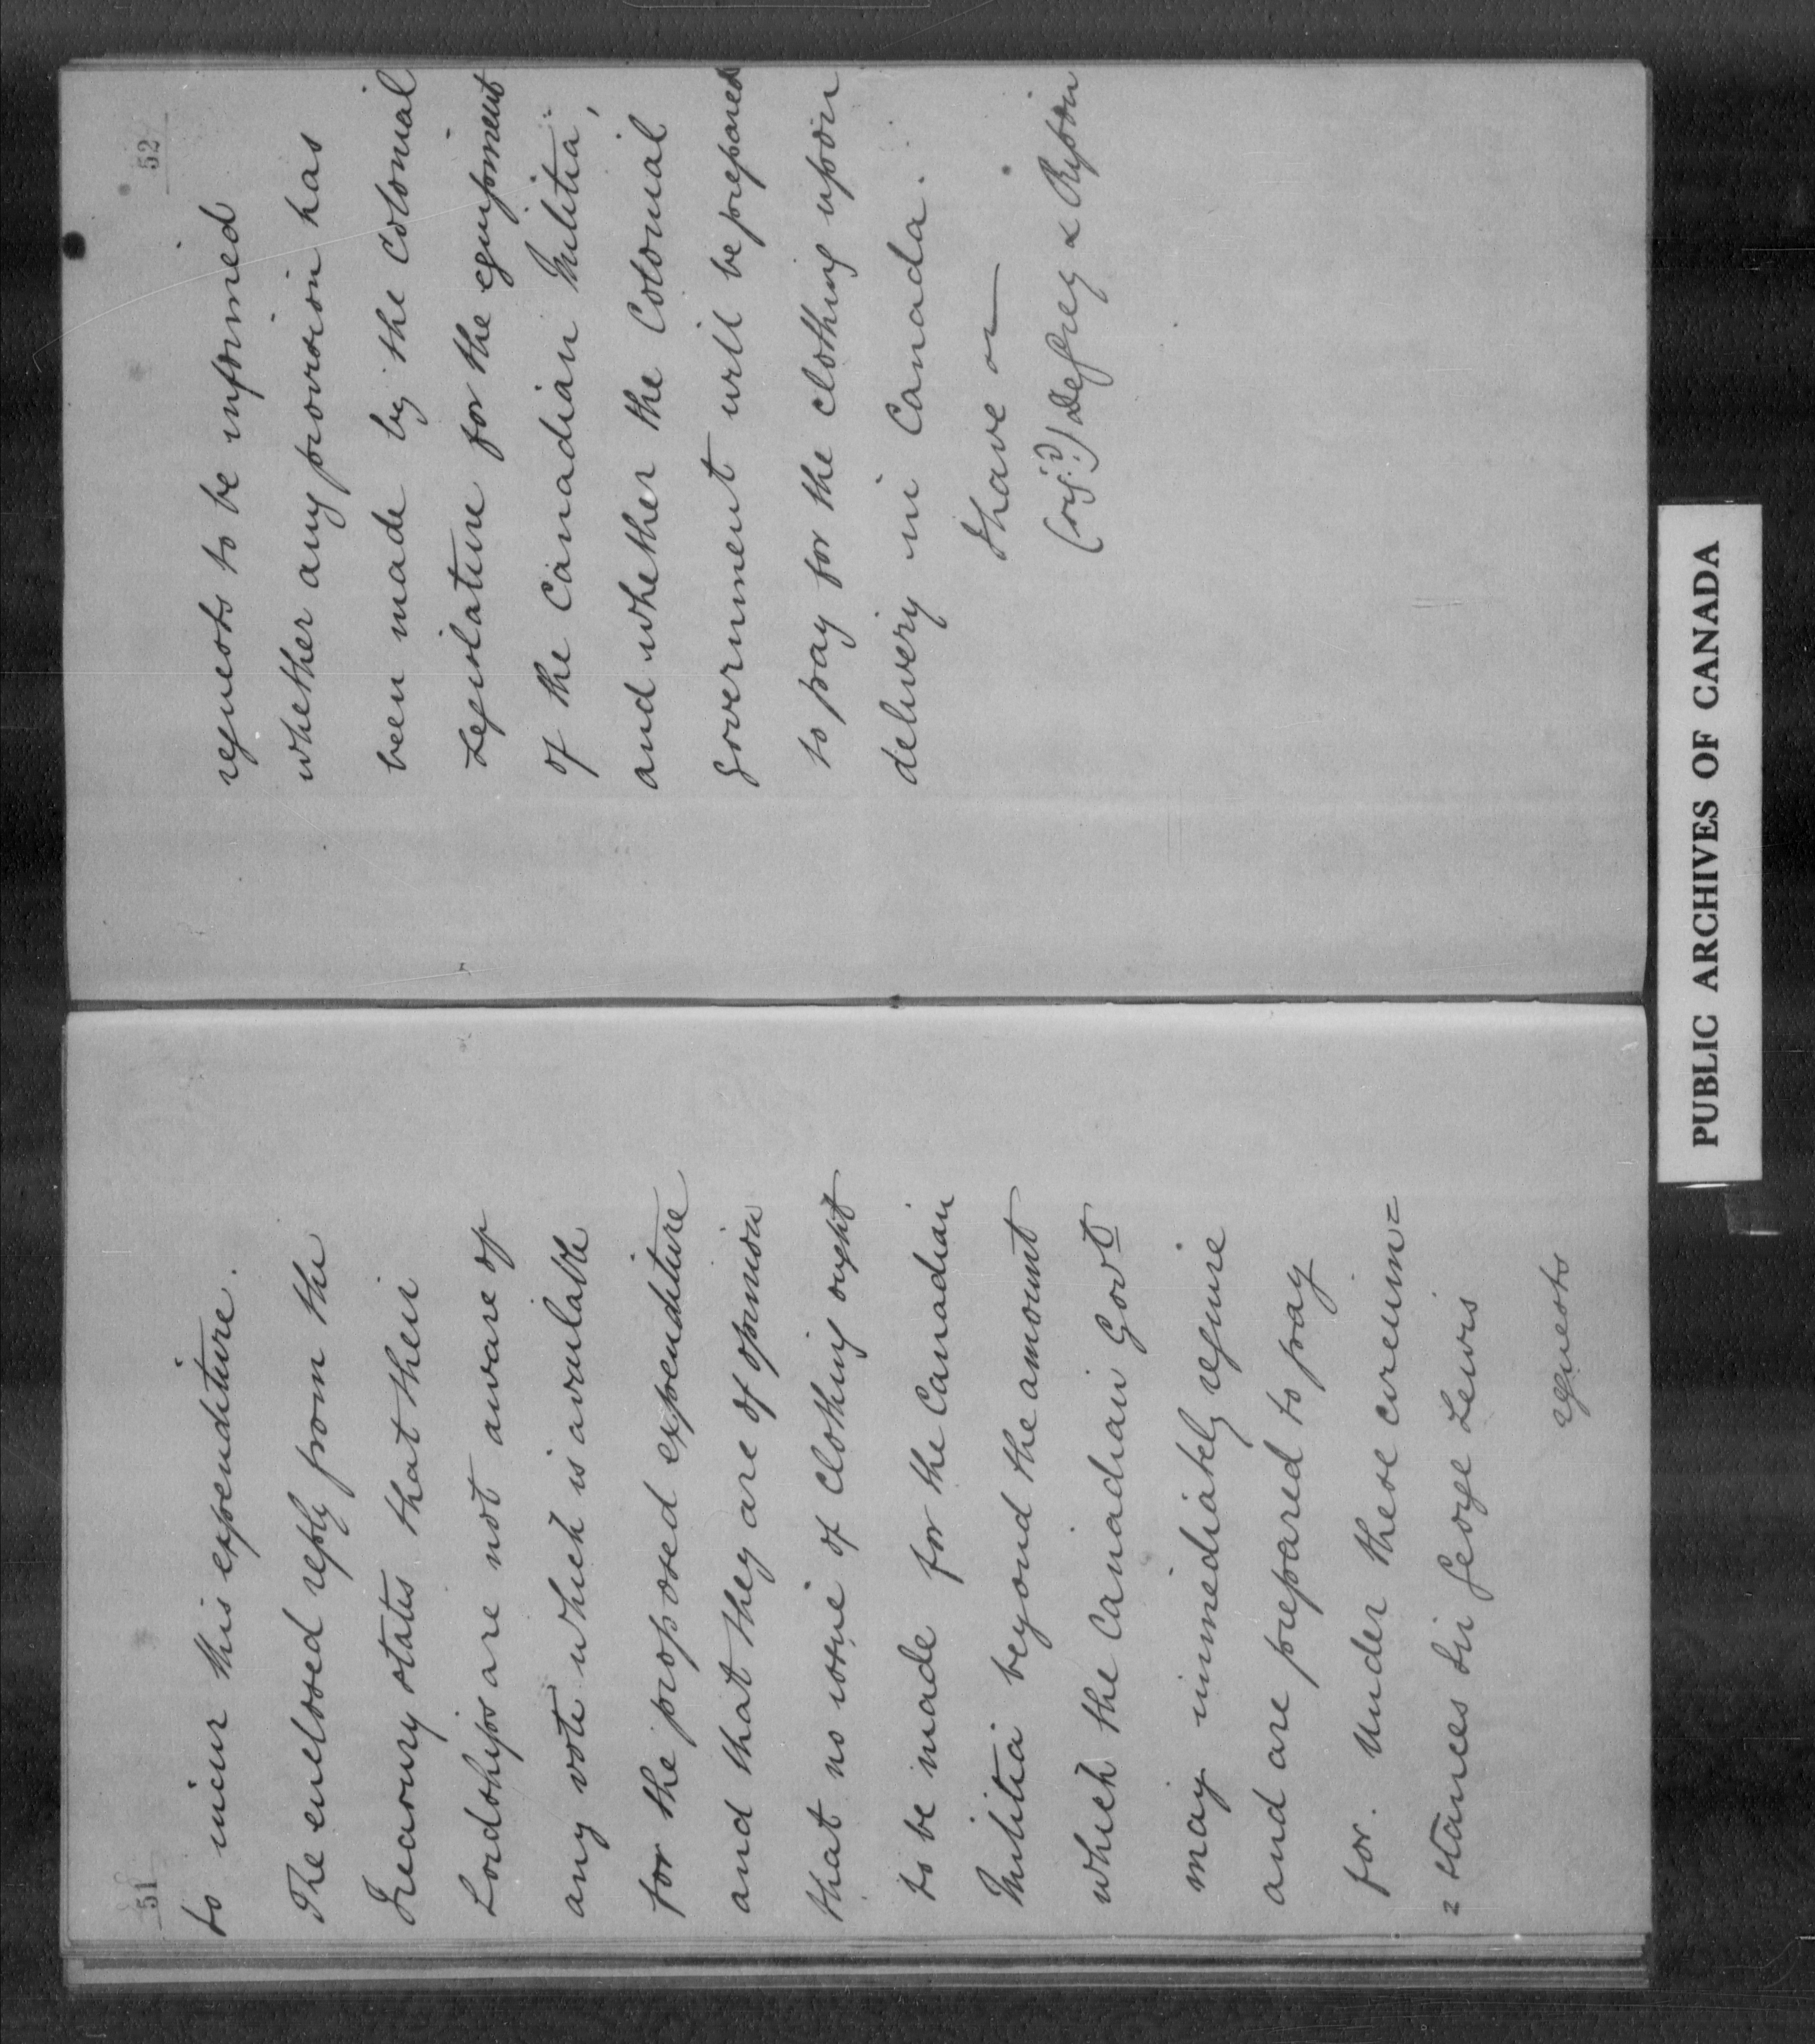 51
to incur this expenditure.
The enclosed reply from the
Treasury states that their
Lordships are not aware of
any vote which is available
for the proposed expenditure
and that they are of opinion
that no issue of clothing ought
to be made for the Canadian
Militia beyond the amount
which the Canadian Govt
may immediately require
and are prepared to pay
for. Under these circum=
=stances Sir George Lewis
requests
52
requests to be informed
whether any provision has
been made by the Colonial
Legislature for the equipment
of the Canadian Militia,
and whether the Colonial
Government will be prepared
to pay for the clothing upon
delivery in Canada.
I have
Defrey & Ripon
PUBLIC ARCHIVES OF CANADA